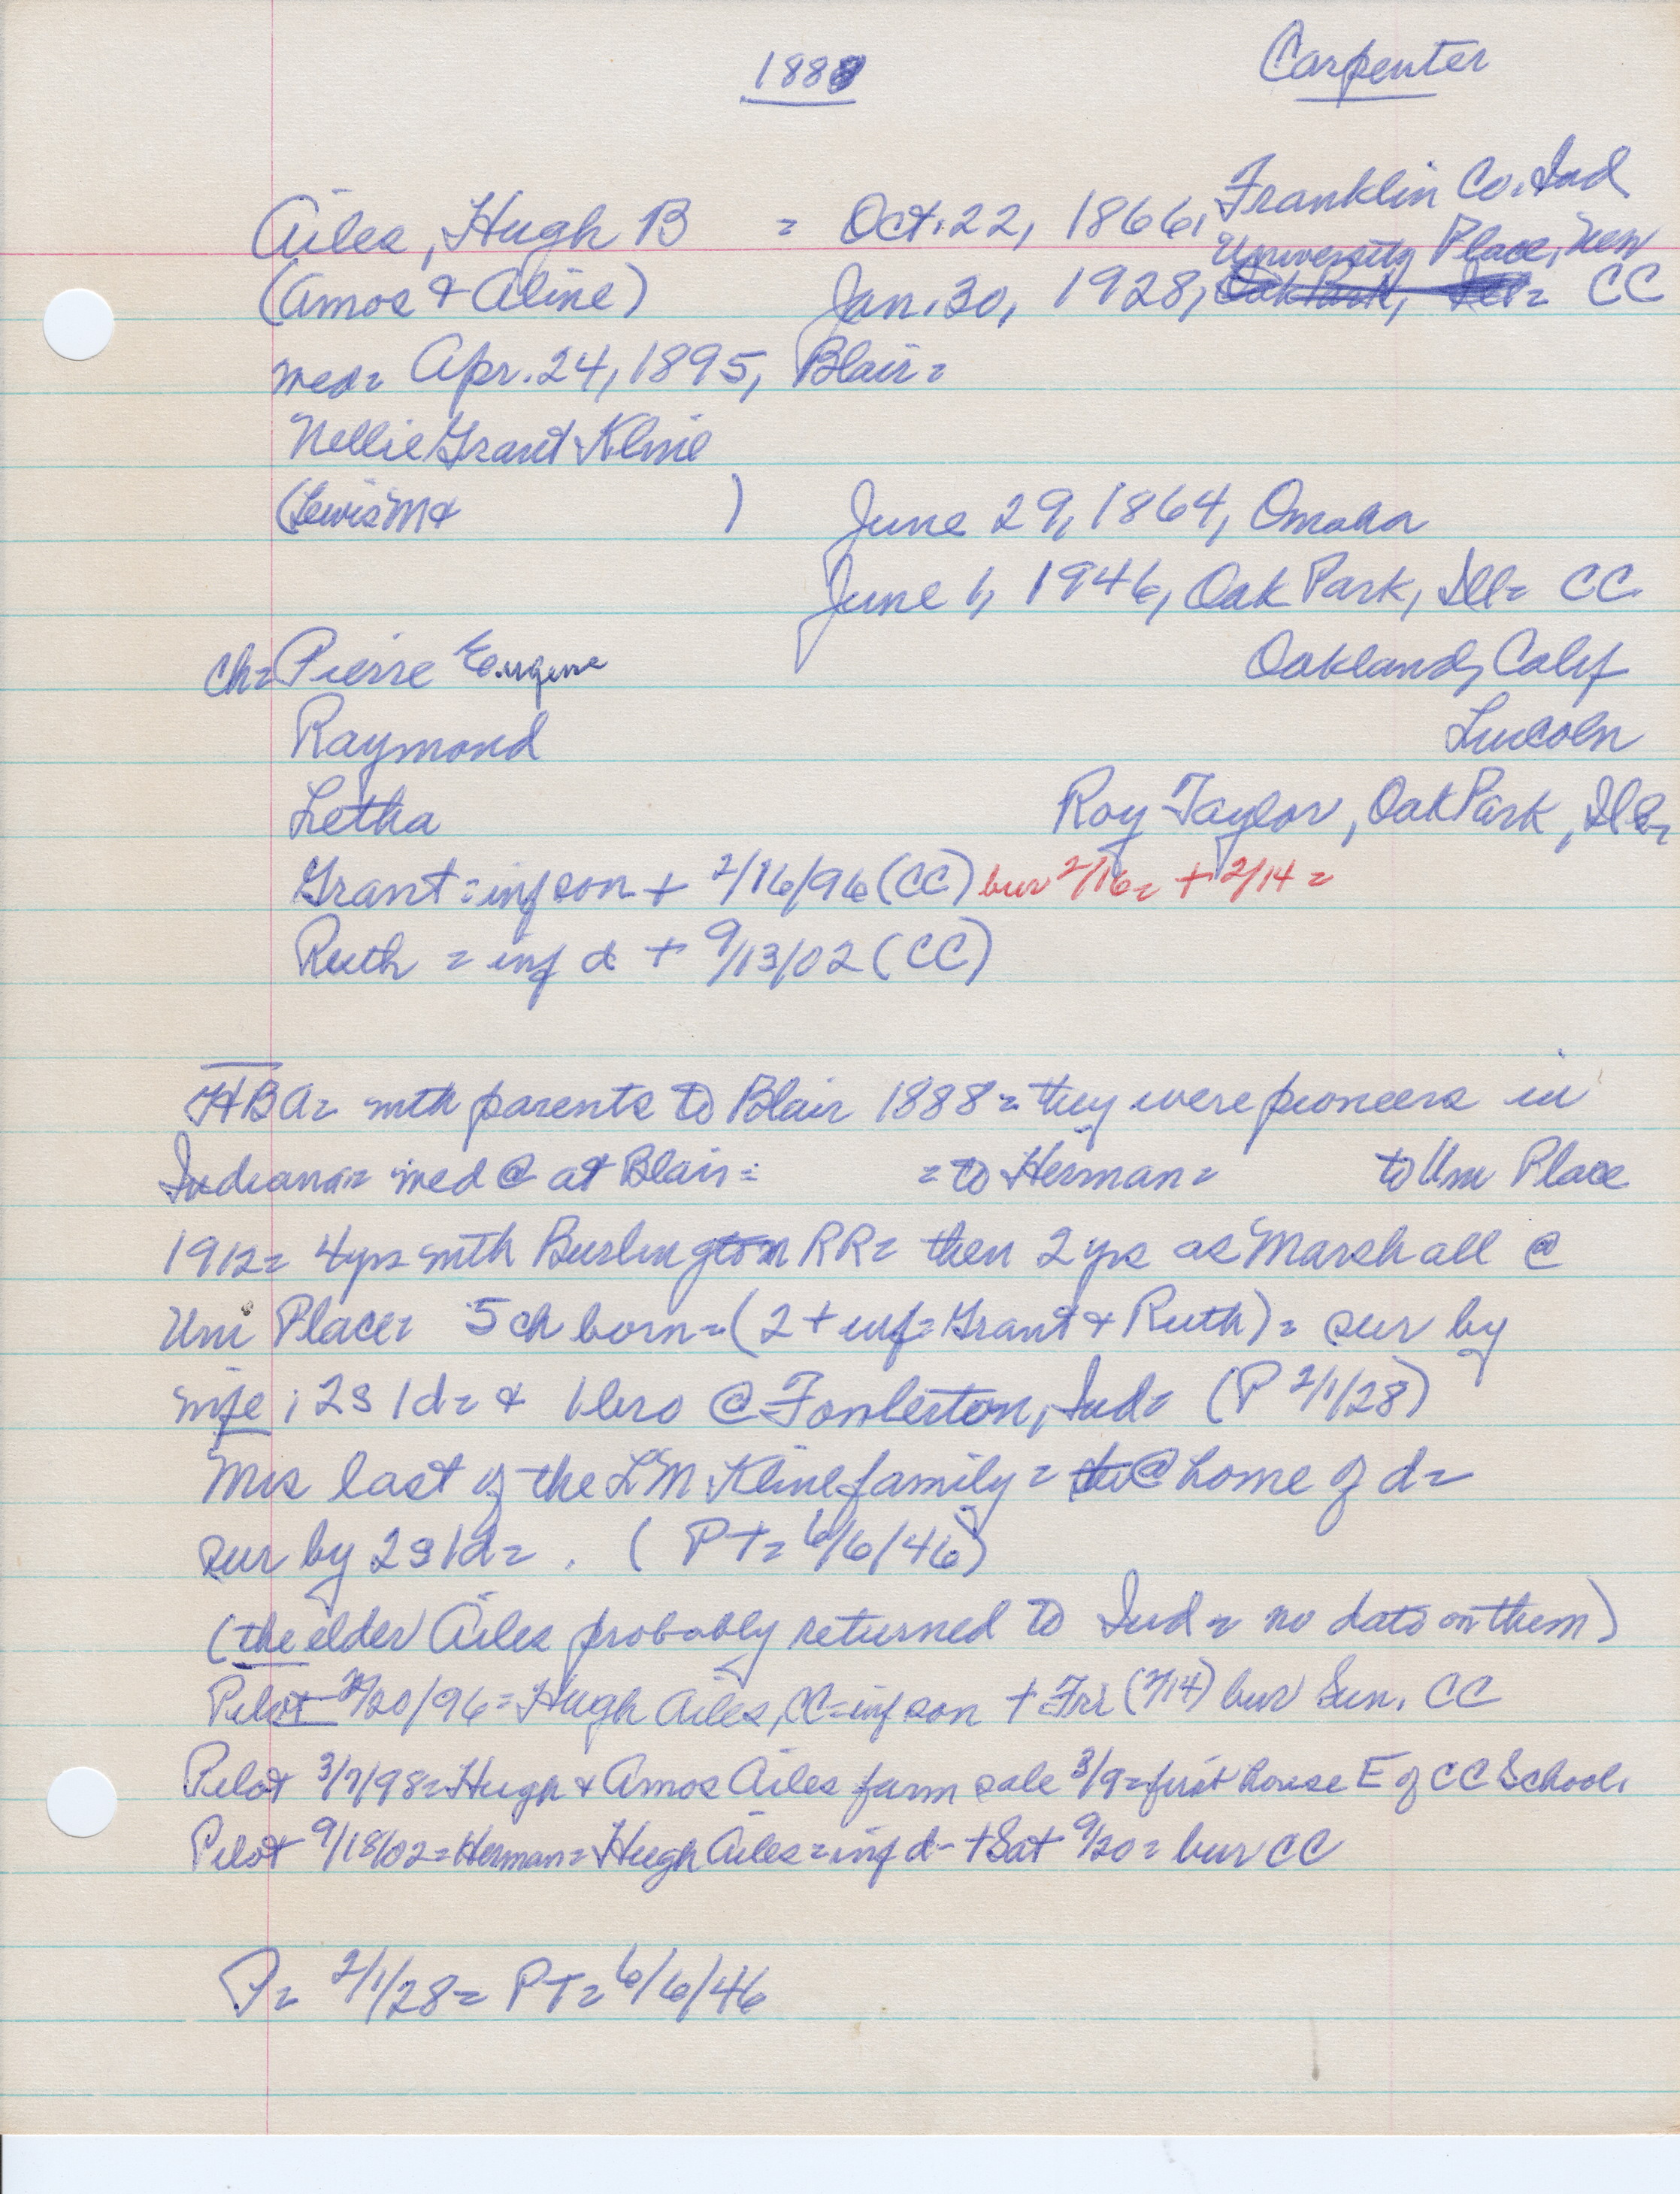 1888
Carpenter
Ailes, Hugh B = Oct. 22, 1866, Franklin Co. Ind
University Place, Neb
(Amos & Aline) Jan. 30, 1928, Oak Park, Ill= CC
med= Apr. 24, 1895, Blair=
Nellie Grant Kline
(Lewis M & ) June 29, 1864, Omaha
June 1, 1946, Oak Park, Ill= CC
ch= Pierre Eugene Oakland, Calif
Raymond Lincoln
Letha Roy Taylor, Oak Park, Ill=
Grant= inf son + 2/16/96 (CC) bur 2/16= + 2/14=
Ruth = inf d + 9/13/02 (CC)
HBA= with parents to Blair 1888= they were pioneers in
Indiana= med @ at Blair= = to Herman= to Uni Place
1912= 4yrs with Burlington RR= then 2 yrs as Marshall @
Uni Place= 5 ch born=(2 + inf= Grant & Ruth)= sur by
wife; 2s 1d= & 1 bro @ Fowlerton, Ind= (P 2/1/28)
Mrs last of the LM Kline family= @ home of d=
sur by 2s 1d= . (PT= 6/6/46)
(the elder Ailes probably returned to Ind= no data on them)
Pilot 2/20/96= Hugh Ailes, CC=inf son + Fri (2/14) bur Sun. CC
Pilot 3/7/98= Hugh & Amos Ailes farm sale 3/9= first house E of CC School.
Pilot 9/18/02= Herman= Hugh Ailes= inf d- + Sat 9/20= bur CC
P= 2/1/28= PT= 6/6/46